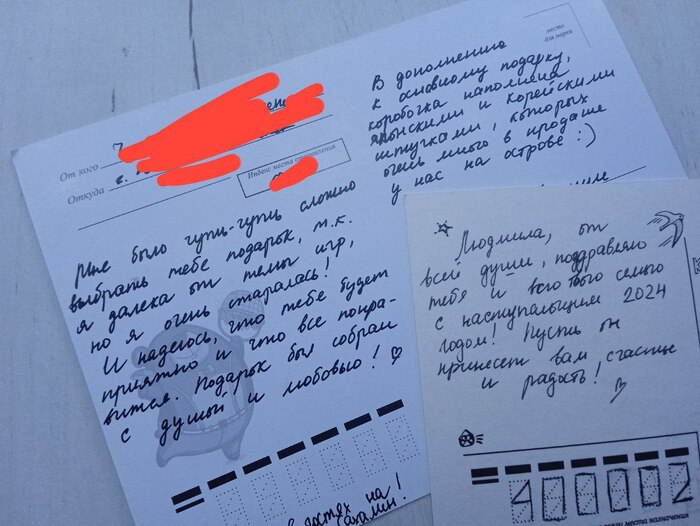 место
для марки
От кого
Откуда г.
Индекс места отправления
В дополнение
к основному подарку,
коробочка наполнена
японскими и корейскими
штучками, которых
очень много в продаже
у нас на острове :)
Мне было чуть-чуть сложно
выбрать тебе подарок, т.к.
я далека от темы игр,
но я очень старалась!
И надеюсь, что тебе будет
приятно и что все понра-
вится. Подарок был собран
с душой и любовью!
Людмила, от
всей души, поздравляю
тебя и всю твою семью
с наступающим 2024
годом! Пусть он
принесет вам счастье
и радость!
400002
места назначения